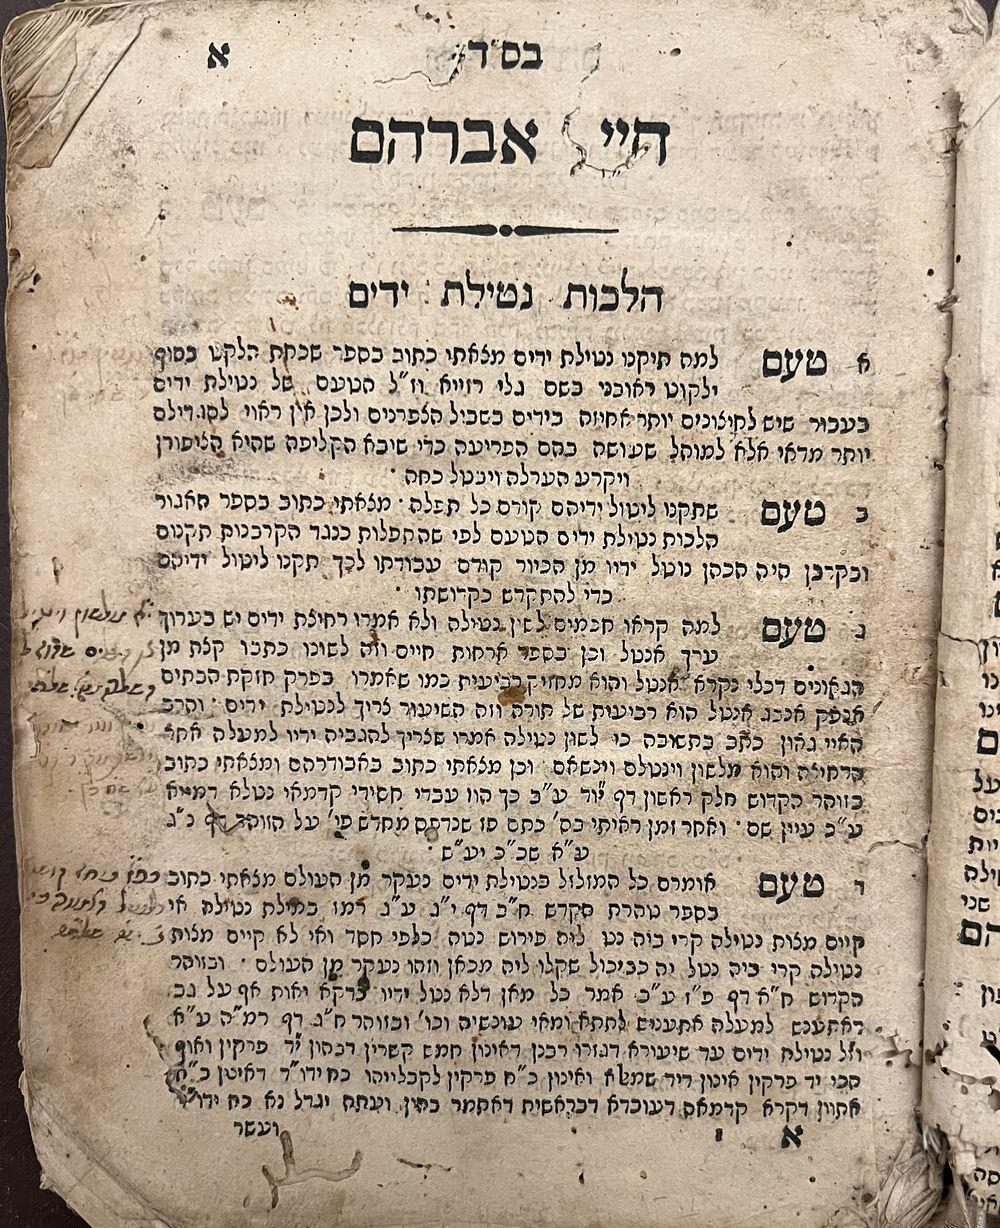 בס״ד א
חיי אברהם
הלכות נטילת ידים
א טעם למה תיקנו נטילת ידים מצאתי כתוב בספר שכחת הלקט בסוף
ילקוט ראובני בשם גלי רזייא וז״ל הטעם של נטילת ידים
בעבור שיש לחיצונים יותר אחיזה בידים בשביל הצפרנים ולכן אין ראוי לסגדילם
יותר מדאי אלא למוהל שעושה בהם הפריעה כדי שיבא הקליפה שהיא הציפורן
ויקרע הערלה ויבטל כחה ·
ב טעם שתקנו ליטול ידיהם קודם כל תפלה · מצאתי כתוב בספר האגור
הלכות נטילת ידים הטעם לפי שהתפלות כנגד הקרבנות תקנום
ובקרבן היה הכהן נוטל ידיו מן הכיור קודם עבודתו לכך תקנו ליטול ידיהם
כדי להתקדש בקדושתו ·
ג טעם למה קראו חכמים לשון נטילה ולא אמרו רחיצת ידים יש בערוך
ערך אנטל וכן בספר ארחות חיים וזה לשונו כתבו קצת מן
הגאונים דכלי נקרא אנטל והוא מחזיק רביעית כמו שאמרו בפרק חזקת הבתים
אנפק אנבג אנטל הוא רביעית של תורה וזה השיעור צריך לנטילת ידים · והרב
האיי גאון כתב בתשובה כי לשון נטילה אמרו שצריך להגביה ידיו למעלה אחר
הרחיצה והוא מלשון וינטלם וינשאם · וכן מצאתי כתוב באבודרהם ומצאתי כתוב
בזוהר הקדוש חלק ראשון דף י״ד ע״ב כך הוו עבדי חסידי קדמאי נטלא דמייא
ע״כ עיין שם · ואחר זמן ראיתי בס׳ כתם פז שנדפס מחדש פי׳ על הזוהר דף כ״ג
ע״א שכ״כ יע״ש ·
ד טעם אומרם כל המזלזל בנטילת ידים נעקר מן העולם מצאתי כתוב
בספר טהרת הקדש ח״ב דף י״ג ע״ג רמז במילת נטילה אי
קיים מצות נטילה קרי ביה נט לי״ה פירוש נטה כלפי חסד ואי לא קיים מצות
נטילה קרי ביה נטל יה כביכול שקלו ליה מכאן וזהו נעקר מן העולם · ובזוהר
הקדוש ח״א דף פ״ז ע״ב אמר כל מאן דלא נטל ידיו כדקא יאות אף על גב
דאתענש למעלה אתענש לתתא ומאי עונשיה וכו׳ ובזוהר ח״ג דף רמ״ה ע״א
ועל נטילת ידים עד שיעורא דגזרו רבנן דאינון חמש קשרין דבהון י״ד פרקין ואוף
הכי יד פרקין אינון דיד שמאלא ואינון כ״ח פרקין לקבלייהו כח ידו״ד דאיטן כ״ח
אתוון דקרא קדמאה דעובדא דבראשית דאתמר בהון ועתה יגדל נא כח ידו״ד
א ועשר